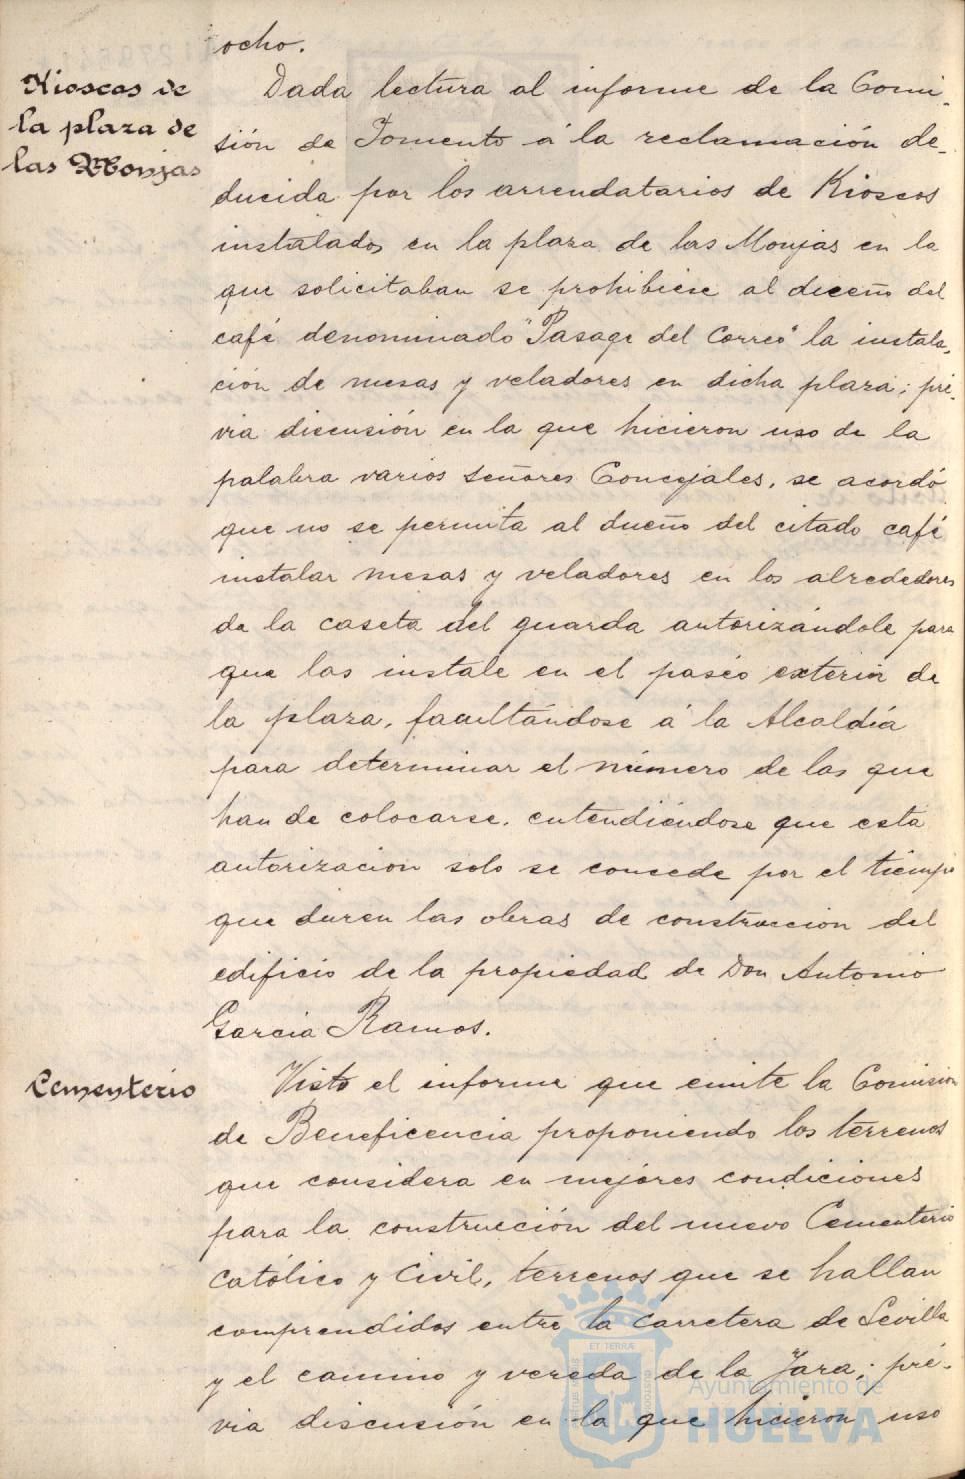 ocho.
Kioscos de
la plaza de
las Monjas
Dada lectura al informe de la Comi-
sión de Fomento á la reclamación de-
ducida por los arrendatarios de Kioscos
instalados en la plaza de las Monjas en la
que solicitaban se prohibiese al dueño del
café denominado "Pasage del Correo" la instala-
ción de mesas y veladores en dicha plaza; pré-
via discusión en la que hicieron uso de la
palabra varios señores Concejales, se acordó
que no se permita al dueño del citado café
instalar mesas y veladores en los alrededores
de la caseta del guarda autorizándole para
que las instale en el paseo exterior de
la plaza, facultándose á la Alcaldía
para determinar el número de las que
han de colocarse, entendiéndose que esta
autorización solo se concede por el tiempo
que duren las obras de construccion del
edificio de la propiedad de Don Antonio
García Ramos.
Cementerio
Visto el informe que emite la Comisión
de Beneficencia proponiendo los terrenos
que considera en mejores condiciones
para la construcción del nuevo Cementerio
Católico y Civil, terrenos que se hallan
comprendidos entre la Carretera de Sevilla
y el camino y vereda de la Jara; pré-
via discusión en la que hicieron uso
Ayuntamiento de
HUELVA